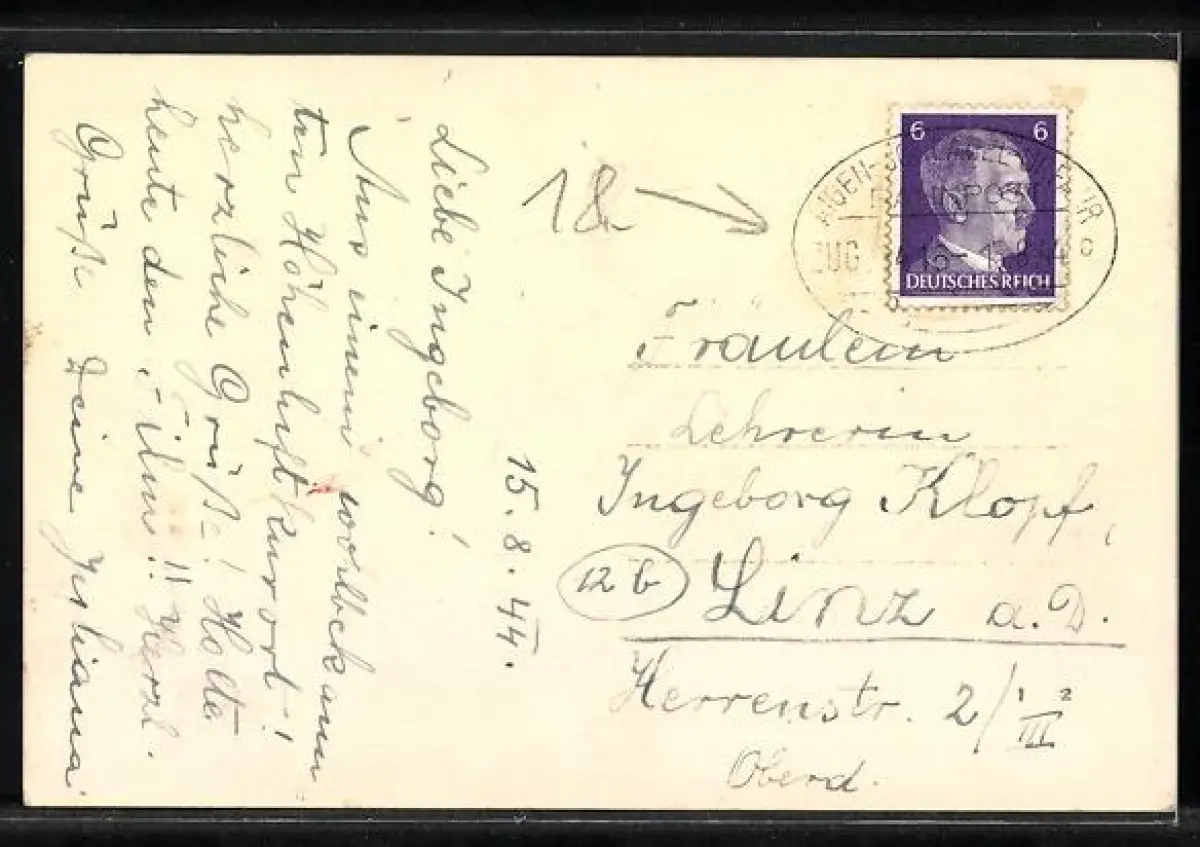 Liebe Ingeborg!
Aus einem wohlbekann
ten Höhenluftkurort!
herzliche Grüße! Holte
heute den Film!! Herzl.
Grüße Deine
15.8.44.
18
6 6
DEUTSCHES REICH
AIGEN-
ZUG
Fräulein
Lehrerin
Ingeborg Klopf,
12b Linz a.D.
Herrenstr. 2/III
Oberd.